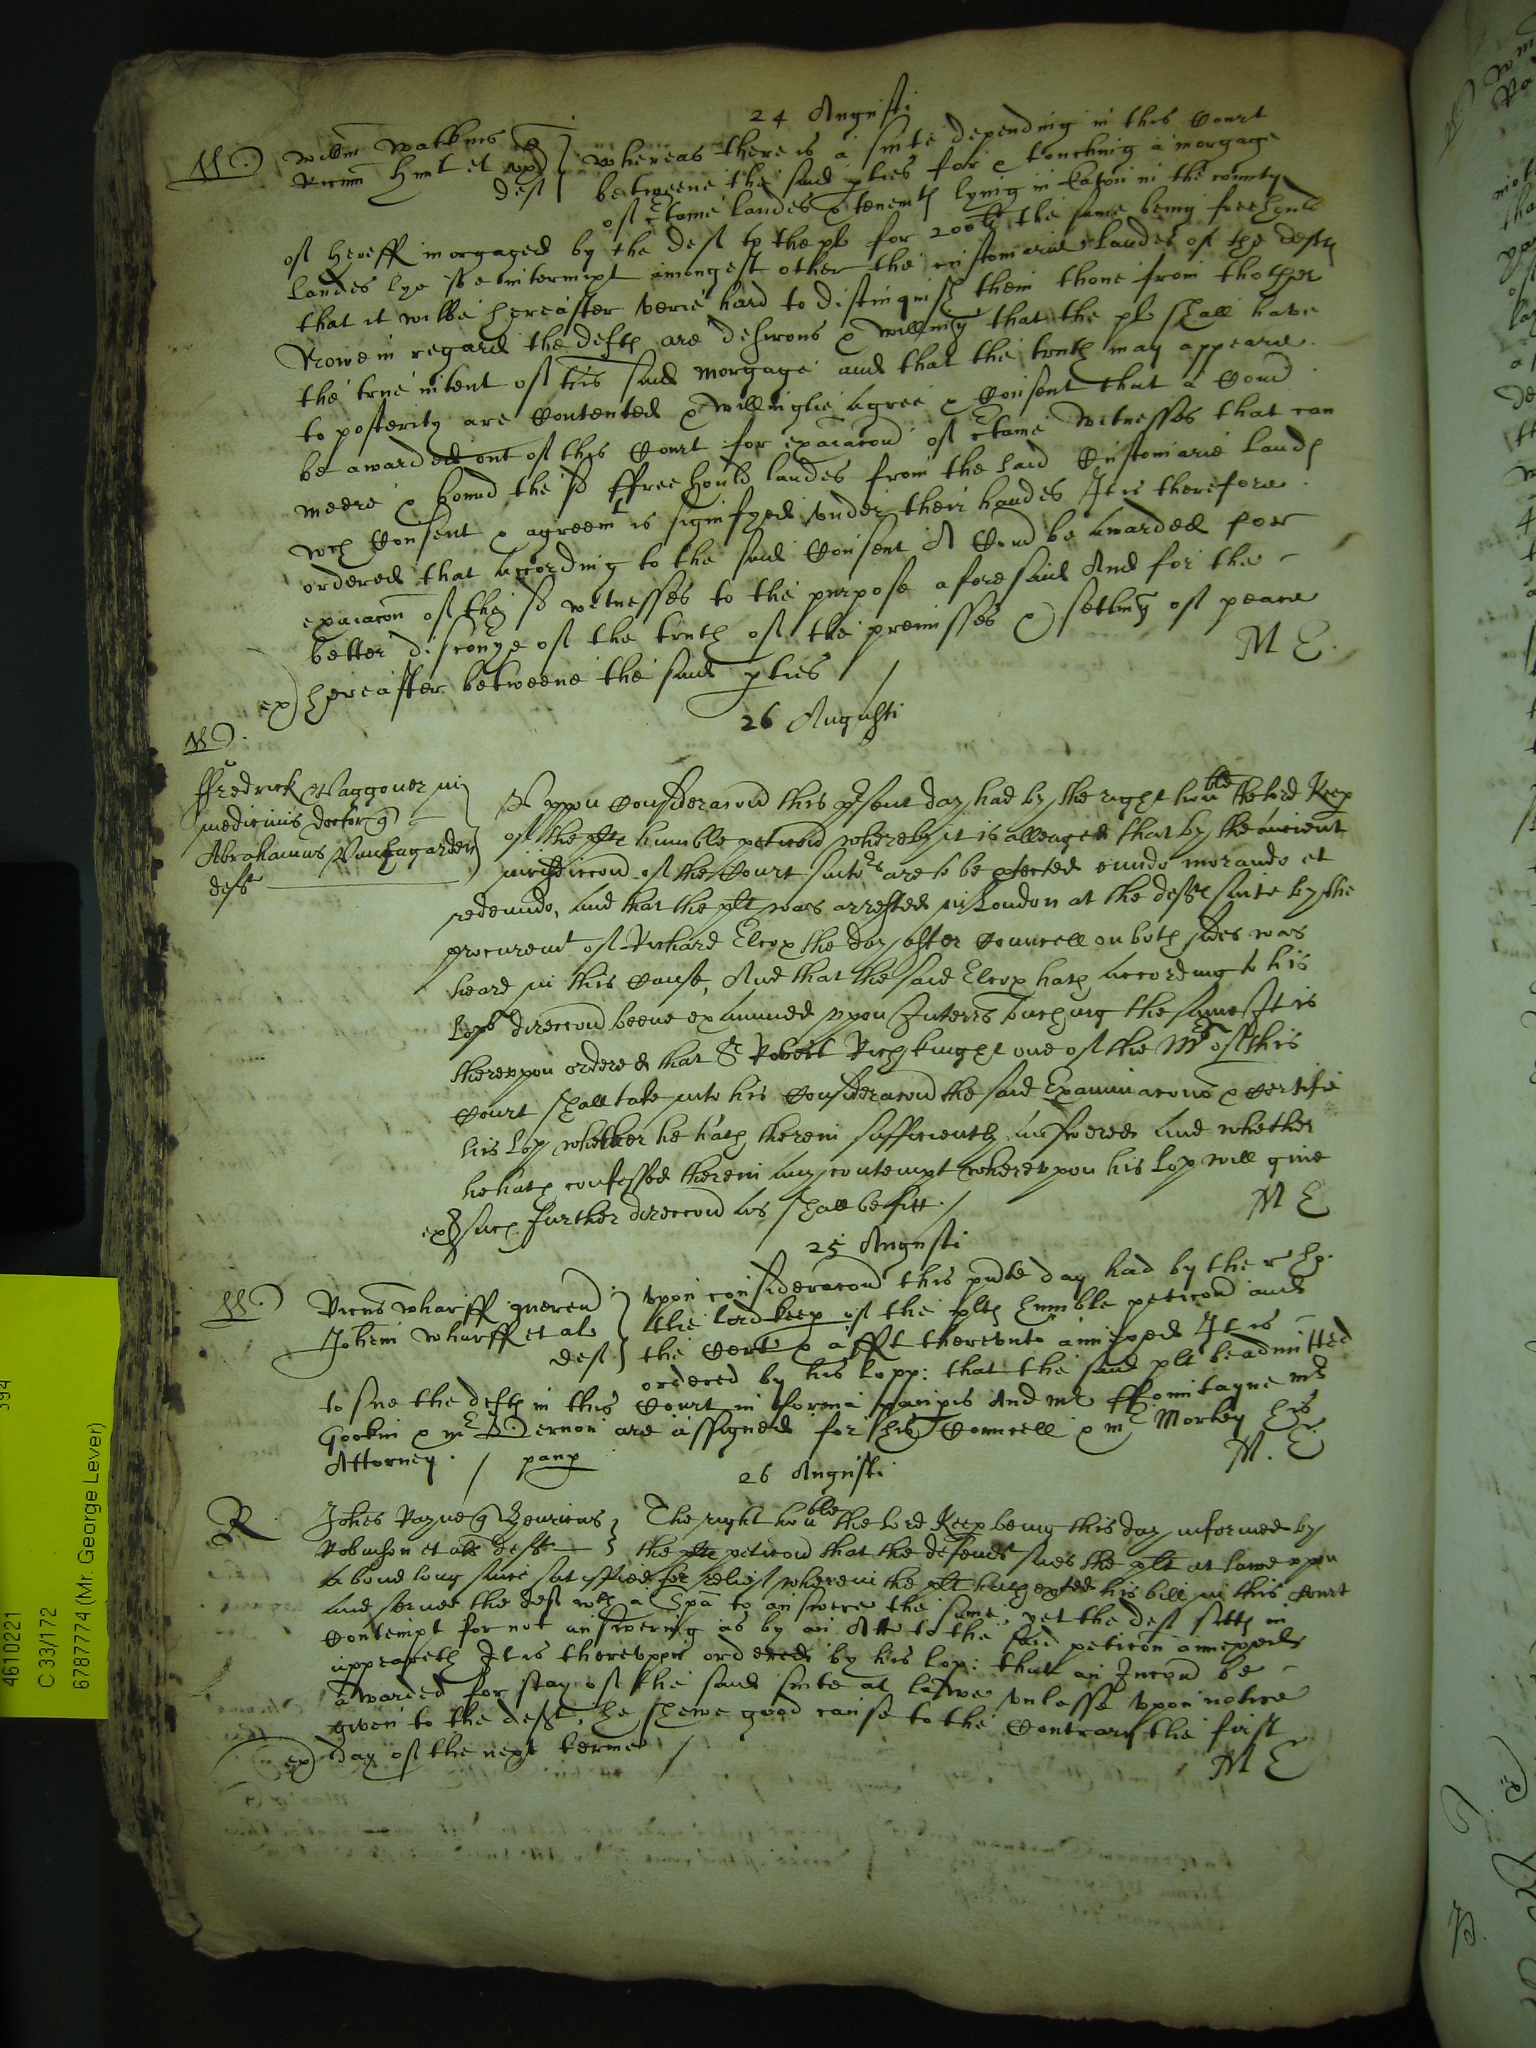 24 Augusti
W. Willm Watkins
Ricum Hunt et ux deft
Whereas there is a suite depending in this Court
betweene the said pties for & touching a morgage
of ctaine landes & tenemts lying in Eaton in the county
of Hereff morgaged by the deft to the pl for 200li the same being freehould
landes lye soe intermixt amongest other the customarie landes of the defts
that it wilbe hereafter verie hard to distinguish them thone from thother
Nowe in regard the defts are desirous & willing that the pl shall have
the true intent of his said morgage and that the truth may appeare
to posterity are contented & willinglie agree & consent that a Comd
be awarded out of this Court for exaiacon of ctaine witnesses that can
meere & bound the sd ffreehould landes from the said Customarie lands
wch Consent & agreemt is signifyed under their handes It is therefore
ordered that according to the said Consent A Comd be awarded for
exaiacon of the sd witnesses to the purpose aforesaid And for the
better discouye of the truth of the premisses & setling of peace
ex) hereafter betweene the said pties /
M E.
26 Augusti
W.
ffredrick Waggoner in
medicinis doctor q
Abrahamus Vanhagarden
deft
Uppon Consideracond this psent day had by the right honble the lord Keep
of the plts humble peticond whereby it is alleaged that by the auncient
jurisdiccond of the Court suitrs are to be ptected eundo morando et
redeundo, and that the plt was arrested in London at the defts suite by the
procuremt of Richard Elcox the day after Councell on both sides was
heard in this cause, And that the said Elcox hath according to his
Lops direccond beene examined uppon Interrs touching the same It is
thereuppon ordered that Sr Robert Rich knight one of the Mrs of this
Court shall take into his Consideracond the said Examinacons & certifie
his Lop whether he hath therein sufficiently answered and whether
he hath confessed therein any contempt whereuppon his Lop will give
ex) such further direccond as shall be fitt /
M E
25 Augusti
W. Ricus Wharff querend
Johem Wharff et als
deft
Upon consideracond this pnte day had by the r ho.
the lord keep of the plts humble peticond and
the Cert & afft thereunto annexed It is
ordered by his Lopp: that the said plt be admitted
to sue the defts in this Court in forma paupis And mr ffountayne mr
Gookin & mr Vernon are assigned for his Councell & mr Morley his
Attorney. / paup
M. E
26 Augusti
R Johes Payne q Henricus
Robinson et als defts
The right honble the Lord Keep being this day informed by
the plts peticond that the defendt sues the plt at lawe uppon
a bond long since satisffied for releif wherein the plt hath exted his bill in this Court
and served the deft wth a Spa to answere the same, yet the deft sitts in
Contempt for not answering as by an Att to the said peticon annexed
appeareth It is thereuppon ordered by his Lop: that an Incond be
awarded for stay of the said suite at lawe unlesse upon notice
given to the deft, he shewe good cause to the Contrary the first
ex) day of the next terme /
M E
4610221
C 33/172
6787774 (Mr. George Lever)
394